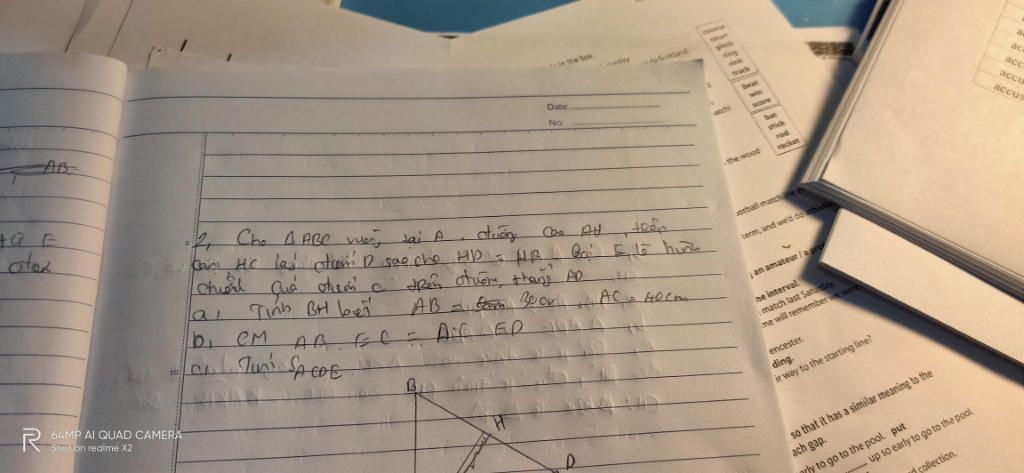 AB
Date:
No:
2, Cho Δ ABC vuông tại A, đường cao AH, trên
cạnh HC lấy điểm D sao cho HD = HB. Gọi E là hình
chiếu của điểm C trên đường thẳng AD
a, Tính BH biết AB = 30cm, AC = 40cm
b, CM AB . EC = AC . ED
c, Tính S ΔCDE
B
H
D
in the list.
course
court
pitch
ring
rink
track
beat
win
score
bat
stick
rod
racket
the wood
football match
term, and we'd do
an amateur / a
ne interval.
match last Saturday
me will remember
encester.
ding.
ir way to the starting line?
so that it has a similar meaning to the
ach gap.
put
rly to go to the pool.
up so early to go to the pool.
d collection.
ac
acc
acc
accu
accus
R
64MP AI QUAD CAMERA
Shot on realme X2